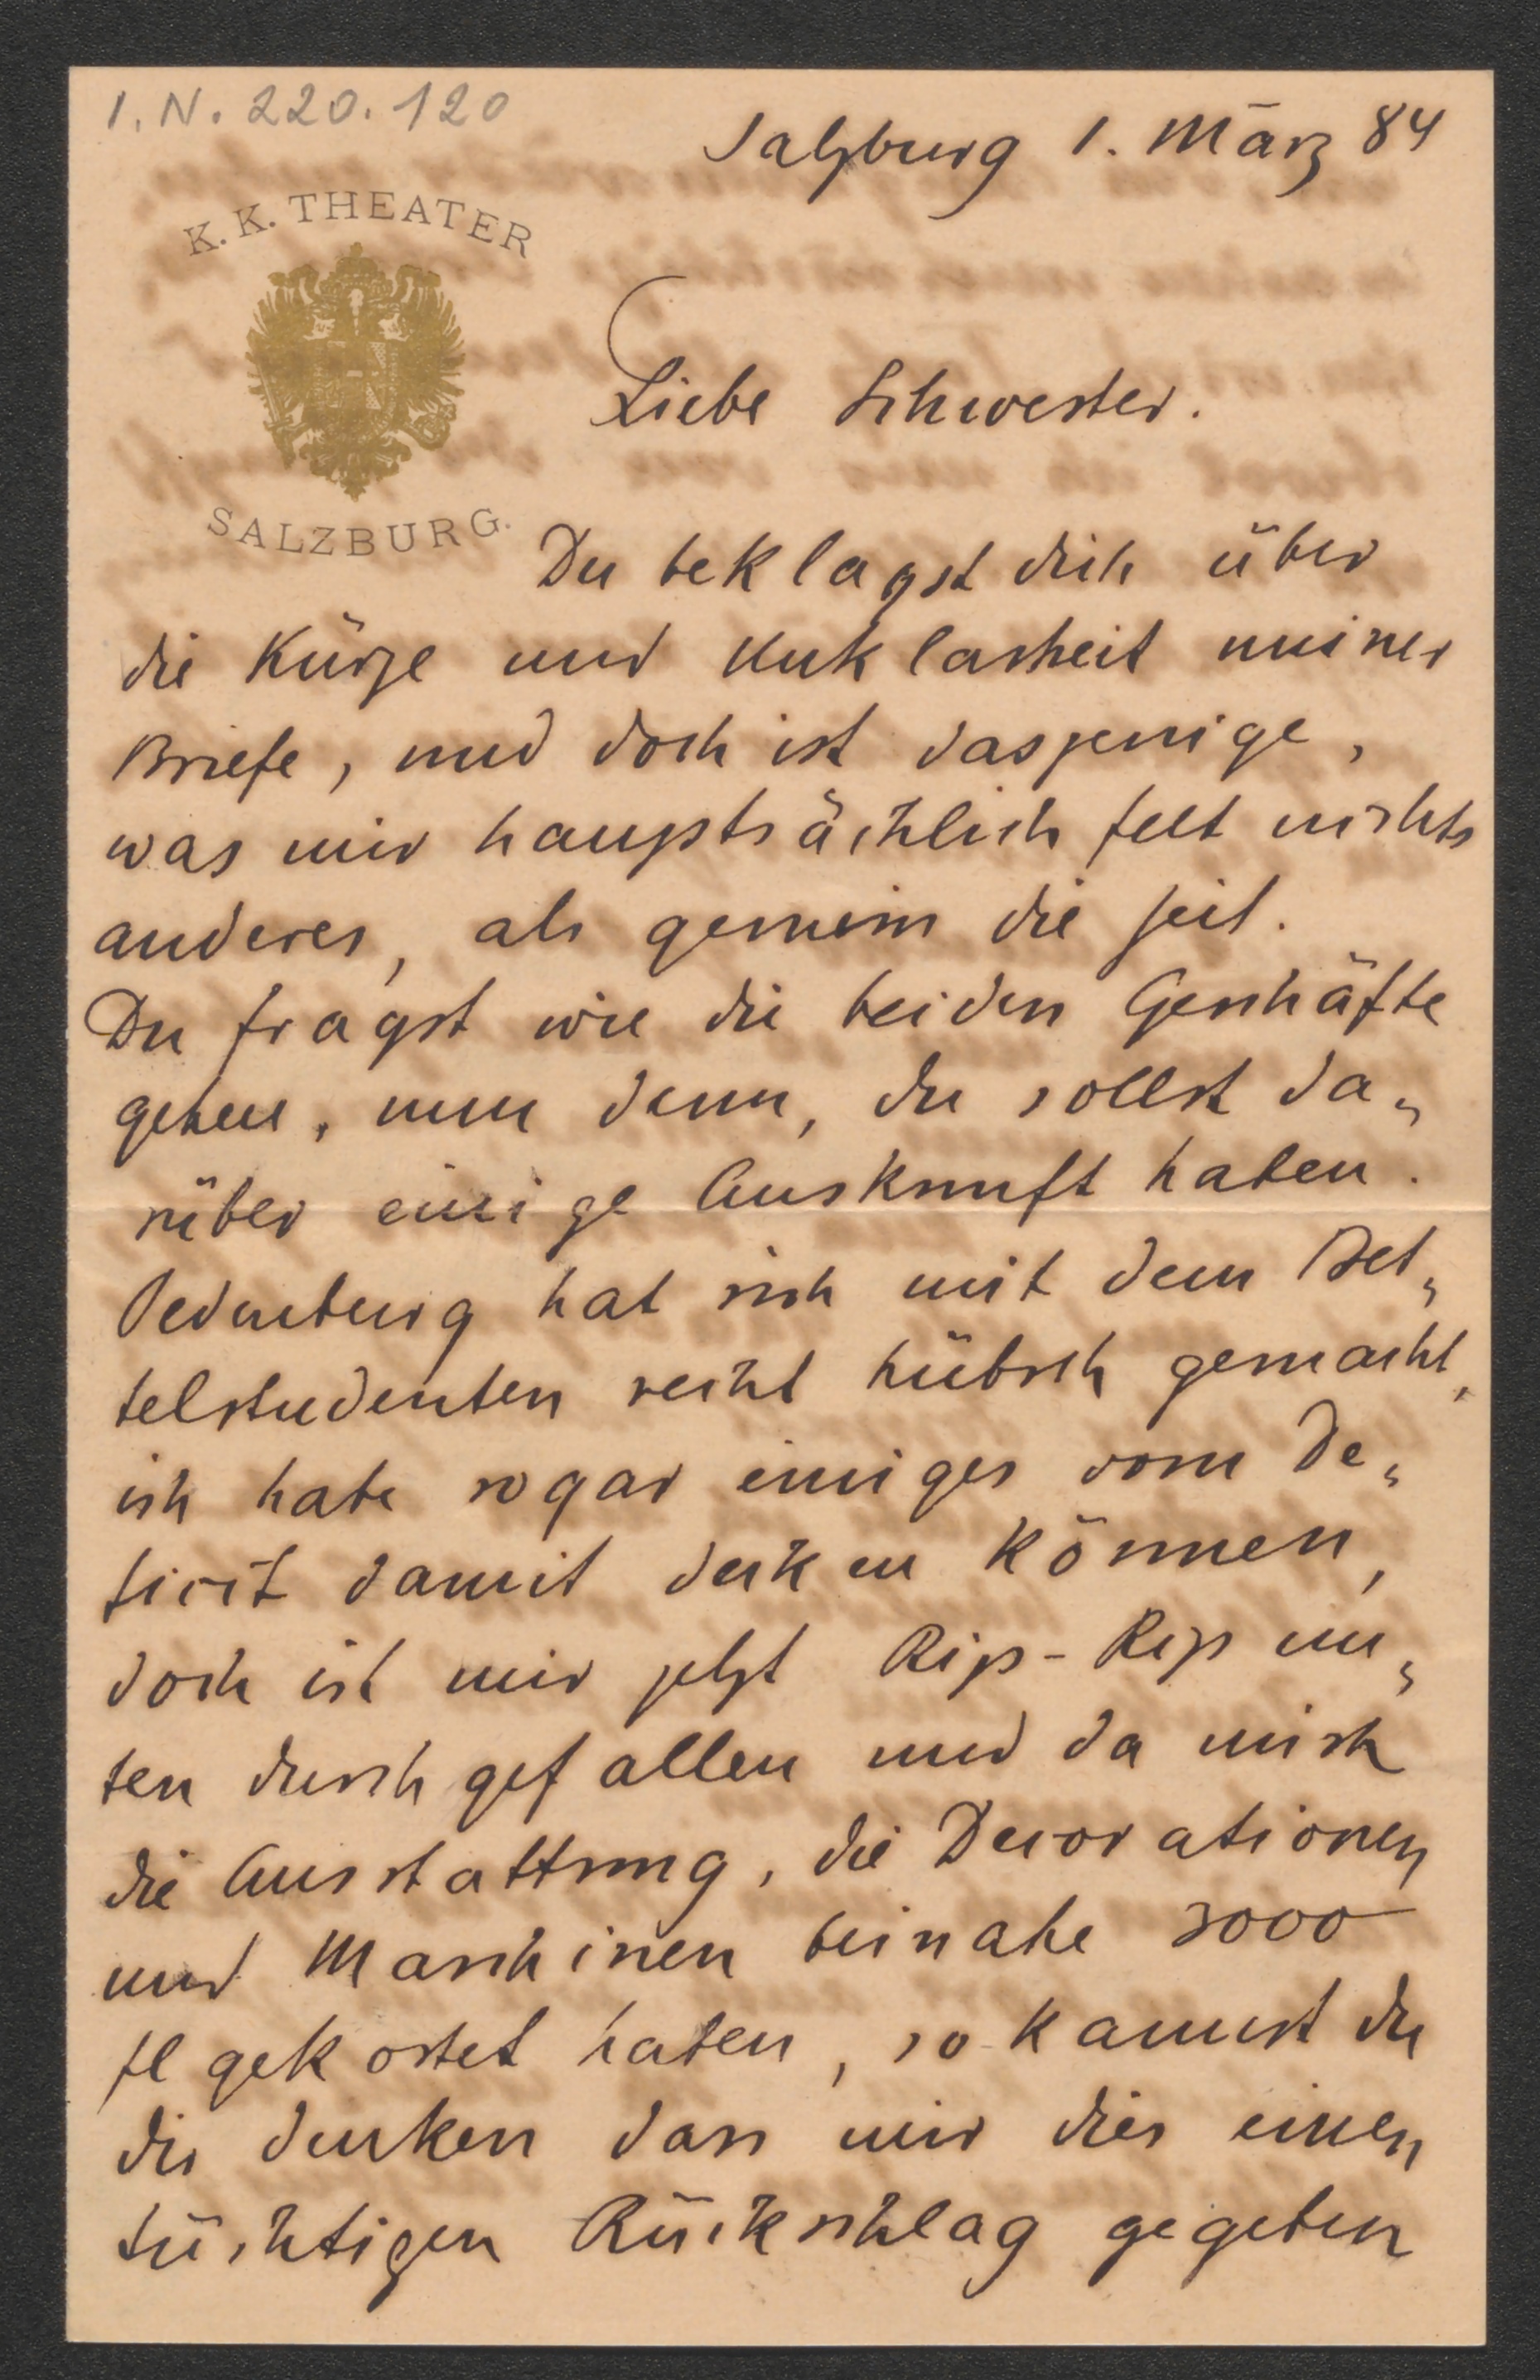 I.N. 220.120
Salzburg 1. März 84
K. K. THEATER
SALZBURG.
Liebe Schwester.
Du beklagst dich über
die Kürze und Unklarheit meiner
Briefe, und doch ist dasjenige,
was mir hauptsächlich felt nichts
anderes, als gemein die Zeit.
Du fragst wie die beiden Geschäfte
gehen, nun denn, du sollst da„
rüber einige Auskunft haben.
Oedenburg hat sich mit dem Bet„
telstudenten recht hübsch gemacht,
ich habe sogar einiges vom De„
ficit damit decken können,
doch ist mir jetzt Rip-Rip un„
ten durchgefallen und da mich
die Ausstattung, die Decorationen
und Maschinen beinahe 3000
fl gekostet haben, so kannst du
dir denken dass mir dies einen
tüchtigen Rückschlag gegeben